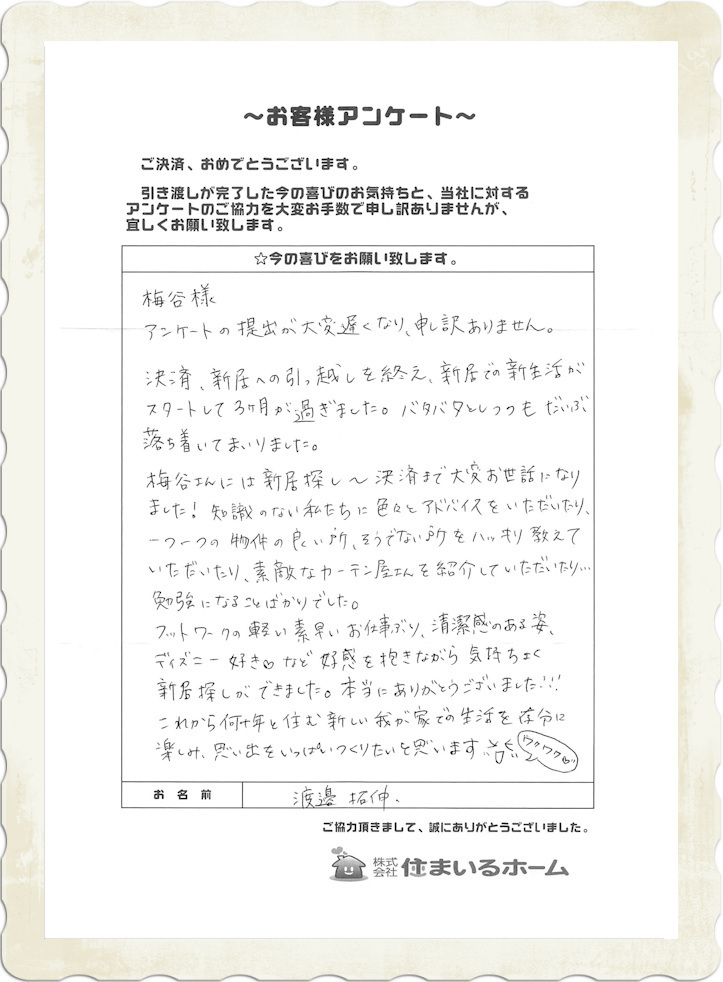 ～お客様アンケート～
ご決済、おめでとうございます。
引き渡しが完了した今の喜びのお気持ちと、当社に対する
アンケートのご協力を大変お手数で申し訳ありませんが、
宜しくお願い致します。
☆今の喜びをお願い致します。
梅谷様
アンケートの提出が大変遅くなり、申し訳ありません。
決済、新居への引っ越しを終え、新居での新生活が
スタートして3ヶ月が過ぎました。バタバタとしつつもだいぶ
落ち着いてまいりました。
梅谷さんには新居探し～決済まで大変お世話になり
ました！知識のない私たちに色々とアドバイスをいただいたり、
一つ一つの物件の良い所、そうでない所をハッキリ教えて
いただいたり、素敵なカーテン屋さんを紹介していただいたり…
勉強になることばかりでした。
フットワークの軽い素早いお仕事ぶり、清潔感のある姿、
ディズニー好き♡など好感を抱きながら気持ちよく
新居探しができました。本当にありがとうございました!!!
これから何十年と住む新しい我が家での生活を存分に
楽しみ、思い出をいっぱいつくりたいと思います
ワクワク♡
お名前 渡邉 拓伸.
ご協力頂きまして、誠にありがとうございました。
株式会社 住まいるホーム